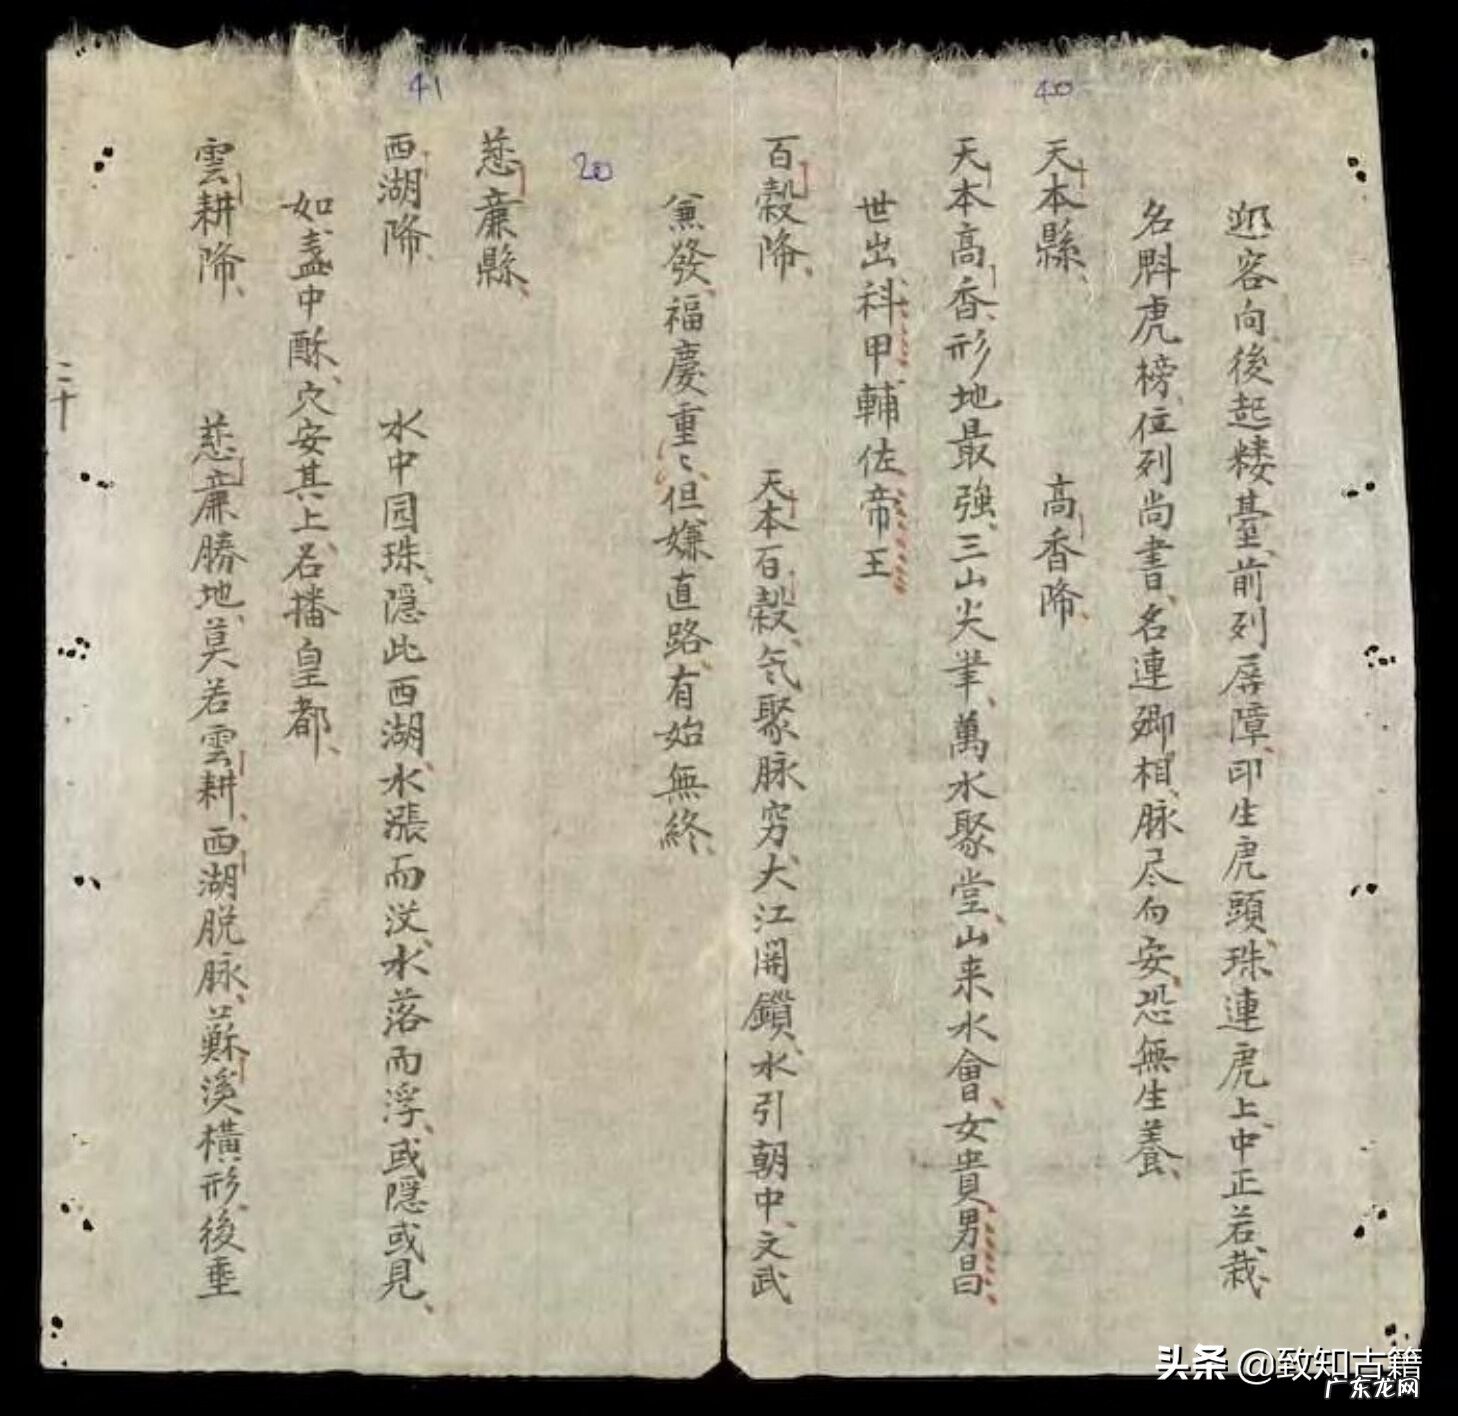 40
迎客向後起楼臺前列屏障印生虎頭珠連虎上中正若栽
名魁虎榜位列尚書名連卿相脉尽向安恐無生養
天本縣 高香降
天本高香形地最強三山尖筆萬水聚堂山来水會女貴男昌
世出科甲輔佐帝王
百穀降 天本百穀氣聚脉窮大江開鎖水引朝中文武
兼發福慶重〻但嫌直路有始無終
41
20
慈廉縣
西湖降 水中园珠隠此西湖水漲而没水落而浮或隠或見
如盞中酥穴安其上名播皇都
雲耕降 慈廉勝地莫若雲耕西湖脱脉蘇溪橫形後垂
二十
头条 @致知古籍
广东龙网